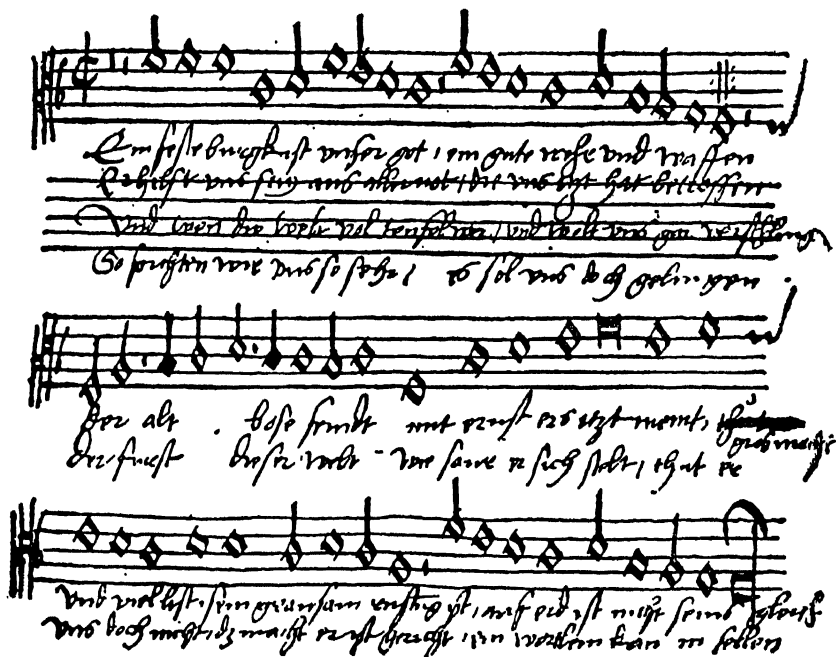 Ein feste burgk ist unser got, ein gute wehr und waffen
Er hilft uns frey aus aller not, die uns ytzt hat betroffen
Und wen die welt vol teufel wer, und wolt uns gar verschling
So furchten wir uns so sehr, es sol uns doch gelingen
Der alt bose feindt mit ernst ers itzt meint,
gros macht
der furst dieser welt wie saur er sich stelt, thut er
und viel list, sein grausam rustung yst, auf erd ist nicht seins gleich
uns doch nicht, dz macht er yst gericht, ein wortlein kan in fellen